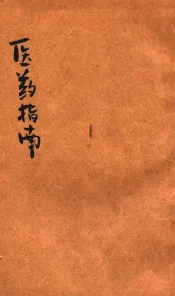 医药指南